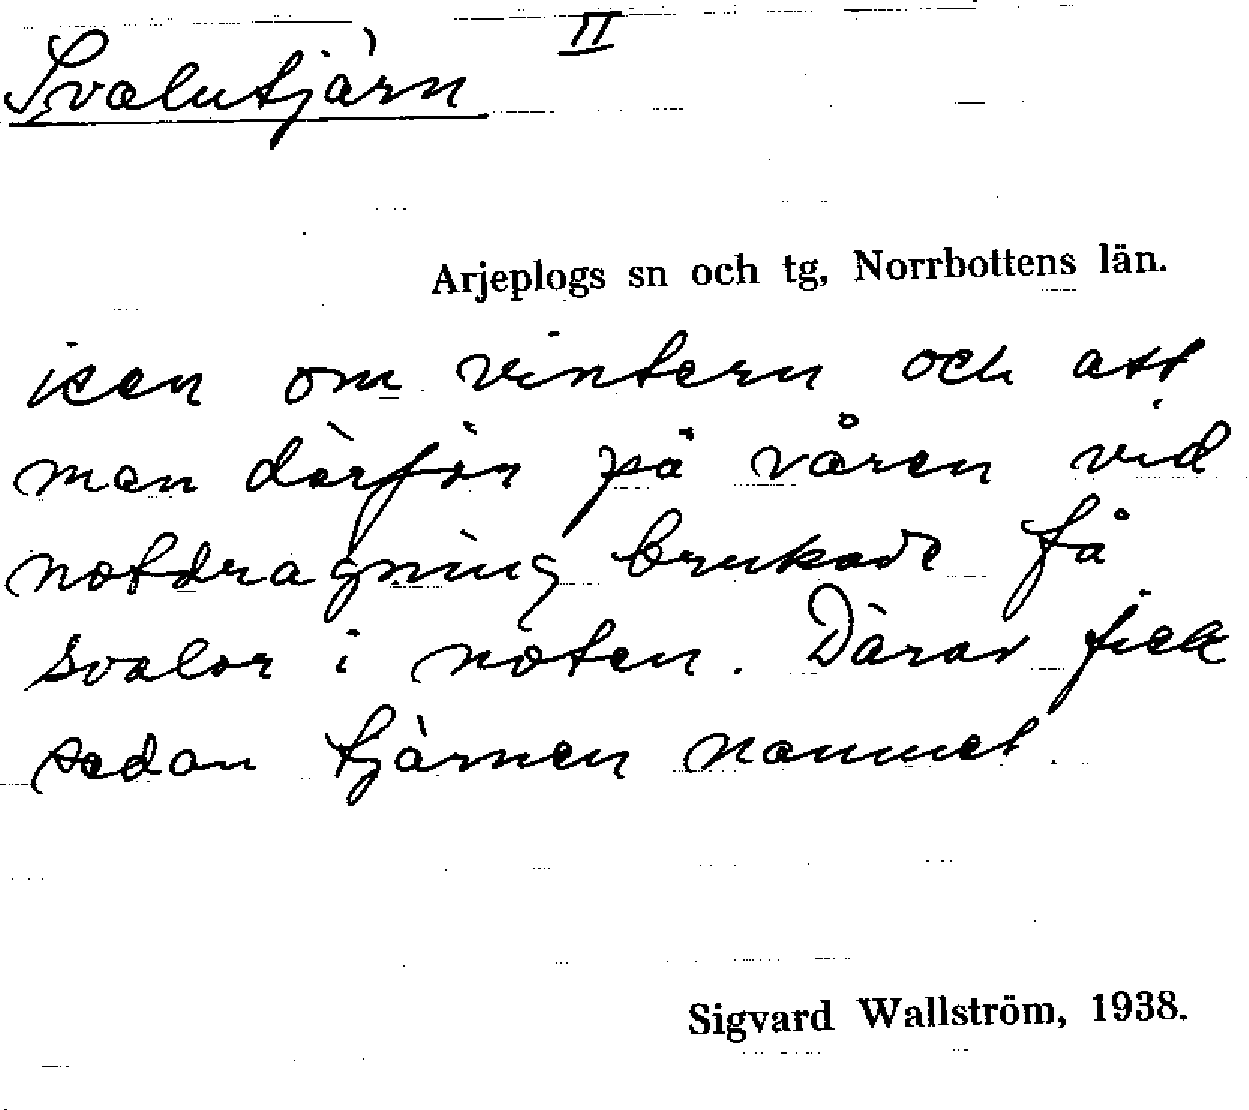 II
Svalutjärn
Arjeplogs sn och tg, Norrbottens län.
isen om vintern och att
man därför på våren vid
notdragning brukade få
svalor i noten. Därav fick
sedan tjärnen namnet.
Sigvard Wallström, 1938.